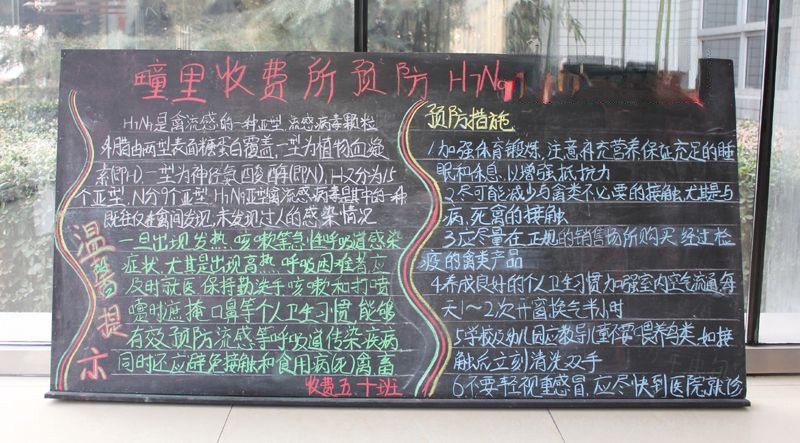 疃里收费所预防H7N9
H7N9是禽流感的一种亚型,流感病毒颗粒
外膜由两型表面糖蛋白覆盖,一型为植物血凝
素(即H)一型为神经氨酸酶(即N),H又分为15
个亚型,N分9个亚型.H7N9亚型禽流感病毒是其中的一种
既往仅在禽间发现,未发现过人的感染情况
温馨提示
一旦出现发热 咳嗽等急性呼吸道感染
症状,尤其是出现高热,呼吸困难者应
及时就医.保持勤洗手咳嗽和打喷
嚏时遮掩口鼻等个人卫生习惯,能够
有效预防流感等呼吸道传染疾病
同时还应避免接触和食用病(死)禽畜
收费五.十班
预防措施
1加强体育锻炼,注意补充营养保证充足的睡
眠和休息,以增强抵抗力
2.尽可能减少与禽类不必要的接触,尤其是与
病,死禽的接触
3应尽量在正规的销售场所购买经过检
疫的禽类产品
4养成良好的个人卫生习惯加强室内空气流通每
天1~2次开窗换气半小时
5学校及幼儿园应教导儿童不要喂养禽类,如接
触后立刻清洗双手
6.不要轻视重感冒,应尽快到医院就诊